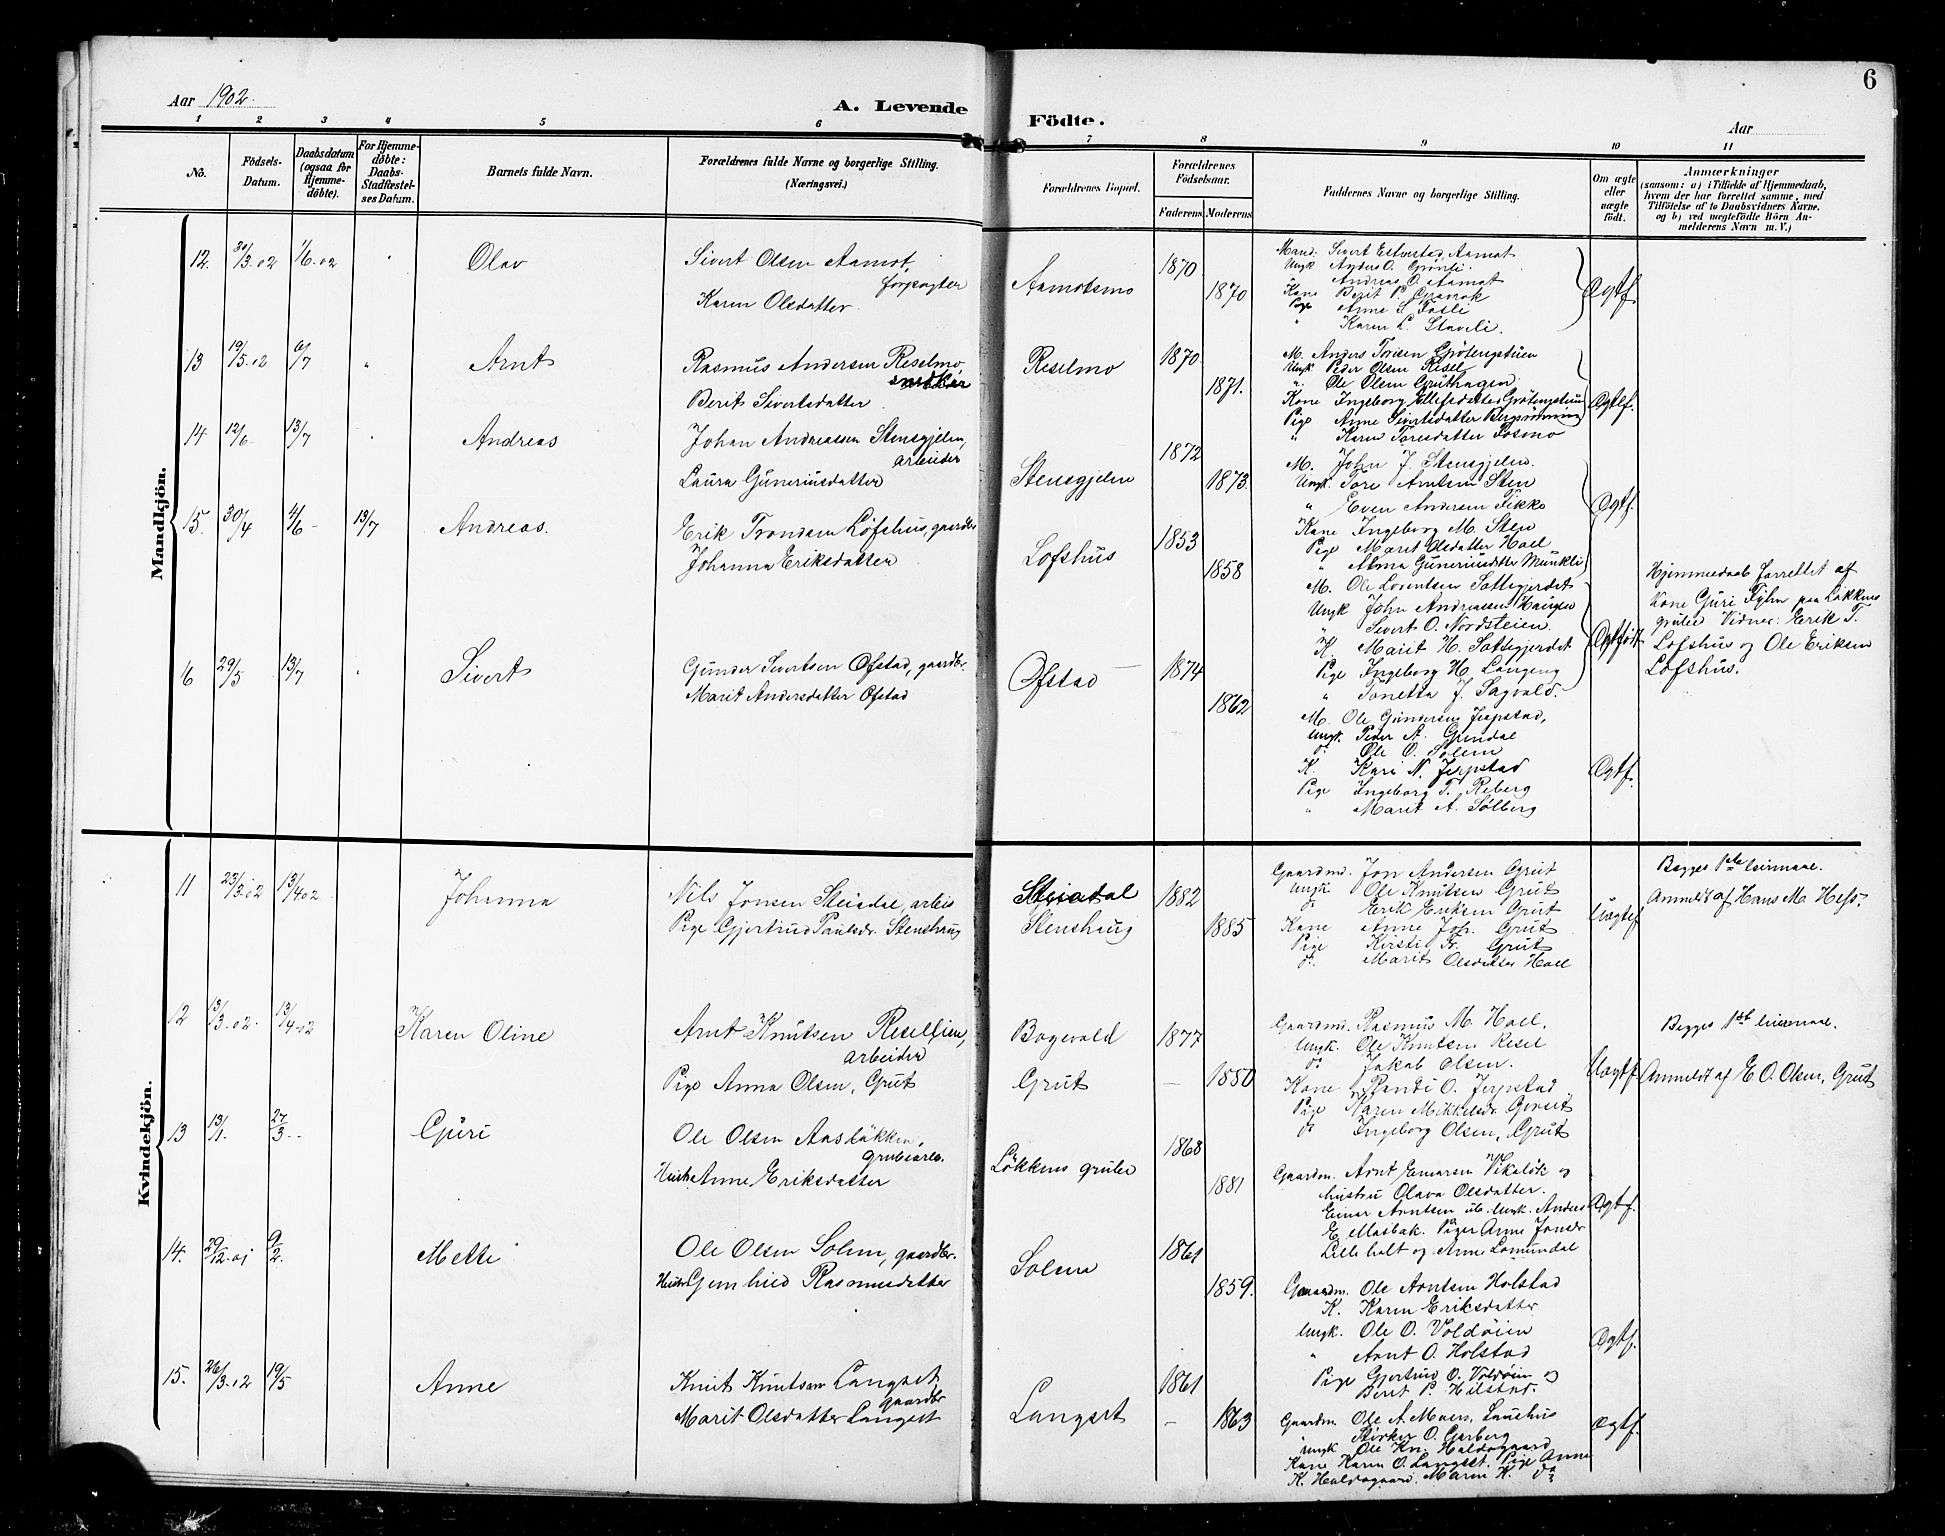 Aar 1902.
A. Levende
Födte.
Aar
6
1 2 3 4 5 6 7 8 9 10 11
No.
Födsels-
Datum.
Daabsdatum
(ogsaa for
Hjemme-
döbte).
For Hjemme-
döbte:
Daabs-
Stadfæstel-
ses Datum.
Barnets fulde Navn.
Forældrenes fulde Navne og borgerlige Stilling.
(Næringsvei.)
Forældrenes Bopæl.
Forældrenes
Födselsaar.
Faderens Moderens
Faddernes Navne og borgerlige Stilling.
Om ægte
eller
uægte
födt.
Anmærkninger
(saasom: a) i Tilfælde af Hjemmedaab,
hvem der har forrettet samme, med
Tilföielse af to Daabsvidners Navne.
og b) ved uægtefödte Börn An-
melderens Navn m. V.)
Mandkjön.
12. 30/3.02 1/6.02 " Olav
Sivert Olsen Aamot,
forpagter
Karen Olsdatter
Aamotsmo 1870 1870
Mand. Sivert Aamot
Ungk Anders O. Grönli.
Andreas O. Aamot
Kone Berit P.
Pige Anne S. Fosli
" Karen L. Stavili.
Ægtf.
13 19/5.02 6/7 " Arnt
Rasmus Andersen Reselmo,
snedker
Berit Sivertsdatter
Reselmo 1870 1871.
M. Anders Torisen Grötengstuen
Ungk Peder Olsen Resel
". Ole Olsen Gruthagen
Kone Ingeborg Ellefsdatter Grötengstuen
Pige Anne Sivertsdatter Bergsrönning
" Karen Toresdatter Fosmo
Ægtef.
14 12/6- 13/7 " Andreas
Johan Andreassen Stensgjelen,
arbeider
Laura Guneriusdatter
Stensgjelen 1872 1873.
M. John J. Stensgjelen.
Ungk. Tore Arntsen Sten
" Even Andersen Fikke
Kone Ingeborg M. Sten
Pige Marit Olsdatter Hoel
" Alma Guneriusdatter Munkli
Ægtf.
15. 30/4 4/6- 13/7 Andreas.
Erik Trondsen Lofshus, gaardbr
Johanna Eriksdatter
Lofshus 1853 1858
M. Ole Lorentsen Sattegjerdet
Ungk John Andreassen Haugen
" Sivert O. Nordsteien.
K. Marit H. Sattegjerdet
Pige Ingeborg H. Langeng
" Tonetta J. Sagvold.
Ægtfødt
Hjemmedaab forrettet af
Kone Guri Fyhn paa Løkkens
grube Vidner: Erik T.
Lofshus og Ole Eriksen
Lofshus.
6 29/5 13/7 " Sivert
Gunder Sivertsen Øfstad, gaardbr.
Marit Andersdatter Øfstad
Øfstad 1874 1862
M. Ole Gundersen Jerpstad,
Ungk. Peder A. Grendal
d: Ole O. Solem
K. Kari N. Jerpstad
Pige Ingeborg T. Reberg
" Marit A. Solberg
Ægtf.
Kvindekjön.
11 23/3.02 13/4.02 Johanna
Nils Jonsen Steiadal, arbeid
Pige Gjertrud Paulsdr. Stenshaug
Steiadal 1882
Stenshaug 1885
Gaardmd. Jon Andersen Grut
Ungk. Ole Knutsen Grut
do Erik Eriksen Grut
Kone Anne Joh. Grut
Pige Kirsti Tr. Grut
do. Marit Olsdatter Hoel
Uægtef
Begges 1ste leiermaal.
Anmeldt af Hans M. Hefs.
12 13/3.02. 13/4.02 Karen Oline
Arnt Knutsen Resellien,
arbeider
Pige Anna Olsen, Grut
Bogevold 1877
Grut — 1880
Gaardmd. Rasmus M. Hoel,
Ungk. Ole Knutsen Resel
do Jakob Olsen.
Kone Randi O. Jerpstad,
Pige Karen Mikkelsdr. Grut
do Ingeborg Olsen, Grut
Uægtf.
Begges 1ste leiermaal.
Anmeldt af E O. Olsen, Grut
13 13/1. 27/3.. Guri
Ole Olsen Aaslökken,
grubearb.
Hustr Anne Eriksdatter
Løkkens grube 1868 1881
Gaardm. Arnt Vikelök og
hustru Olava Olsdatter.
Einar Arntsen ub. Ungk. Anders
E. Masbak. Piger Anne Jonsdr
Lilleholt og Anne Lomundal
Ægtf.
14. 29/12.01 9/2. Mette
Ole Olsen Solem, gaardbr.
Hustr Rasmusdatter
Solem 1861 1859.
Gaardm. Ole Arntsen Holstad
K. Karen Eriksdatter
Ungk. Ole O. Voldöien
" Arnt O. Holstad
Pige Gjertrud O. Voldöin og
Beret P. Hilstad.
Ægtf.
15. 26/3.02 19/5 Anne
Knut Knutsen Langset
gaardbr
Marit Olsdatter Langset
Langset 1861 — 1863
Gaardm. Ole A. Moen, Laushus
" Stirker O. Garberg
Ungk Ole Kn. Haldogaard
Kone Karen O. Langset. Pige Anne
K. Haldogaard. Maren K. do
Ægtf.